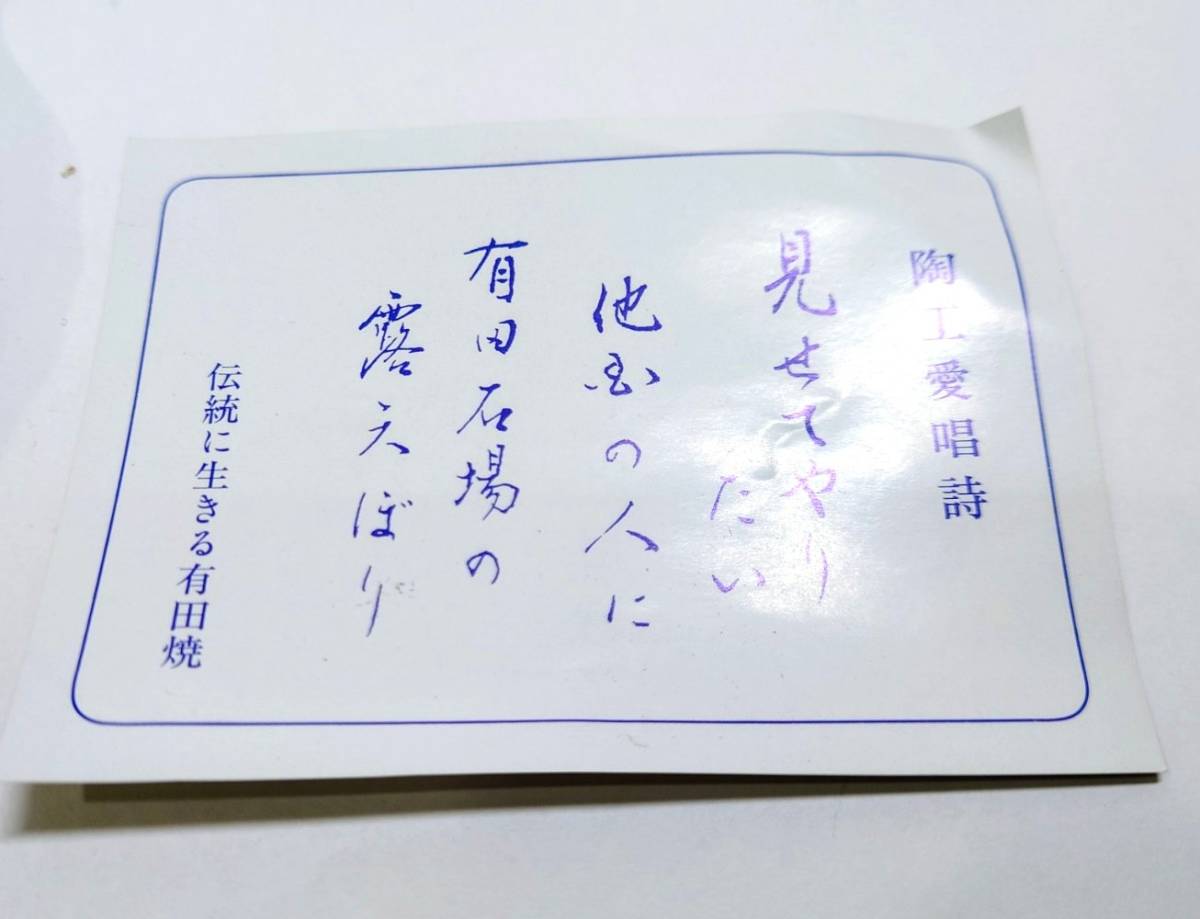 陶工愛唱詩
見せてやり
たい
他国の人に
有田石場の
露天ぼり
伝統に生きる有田焼